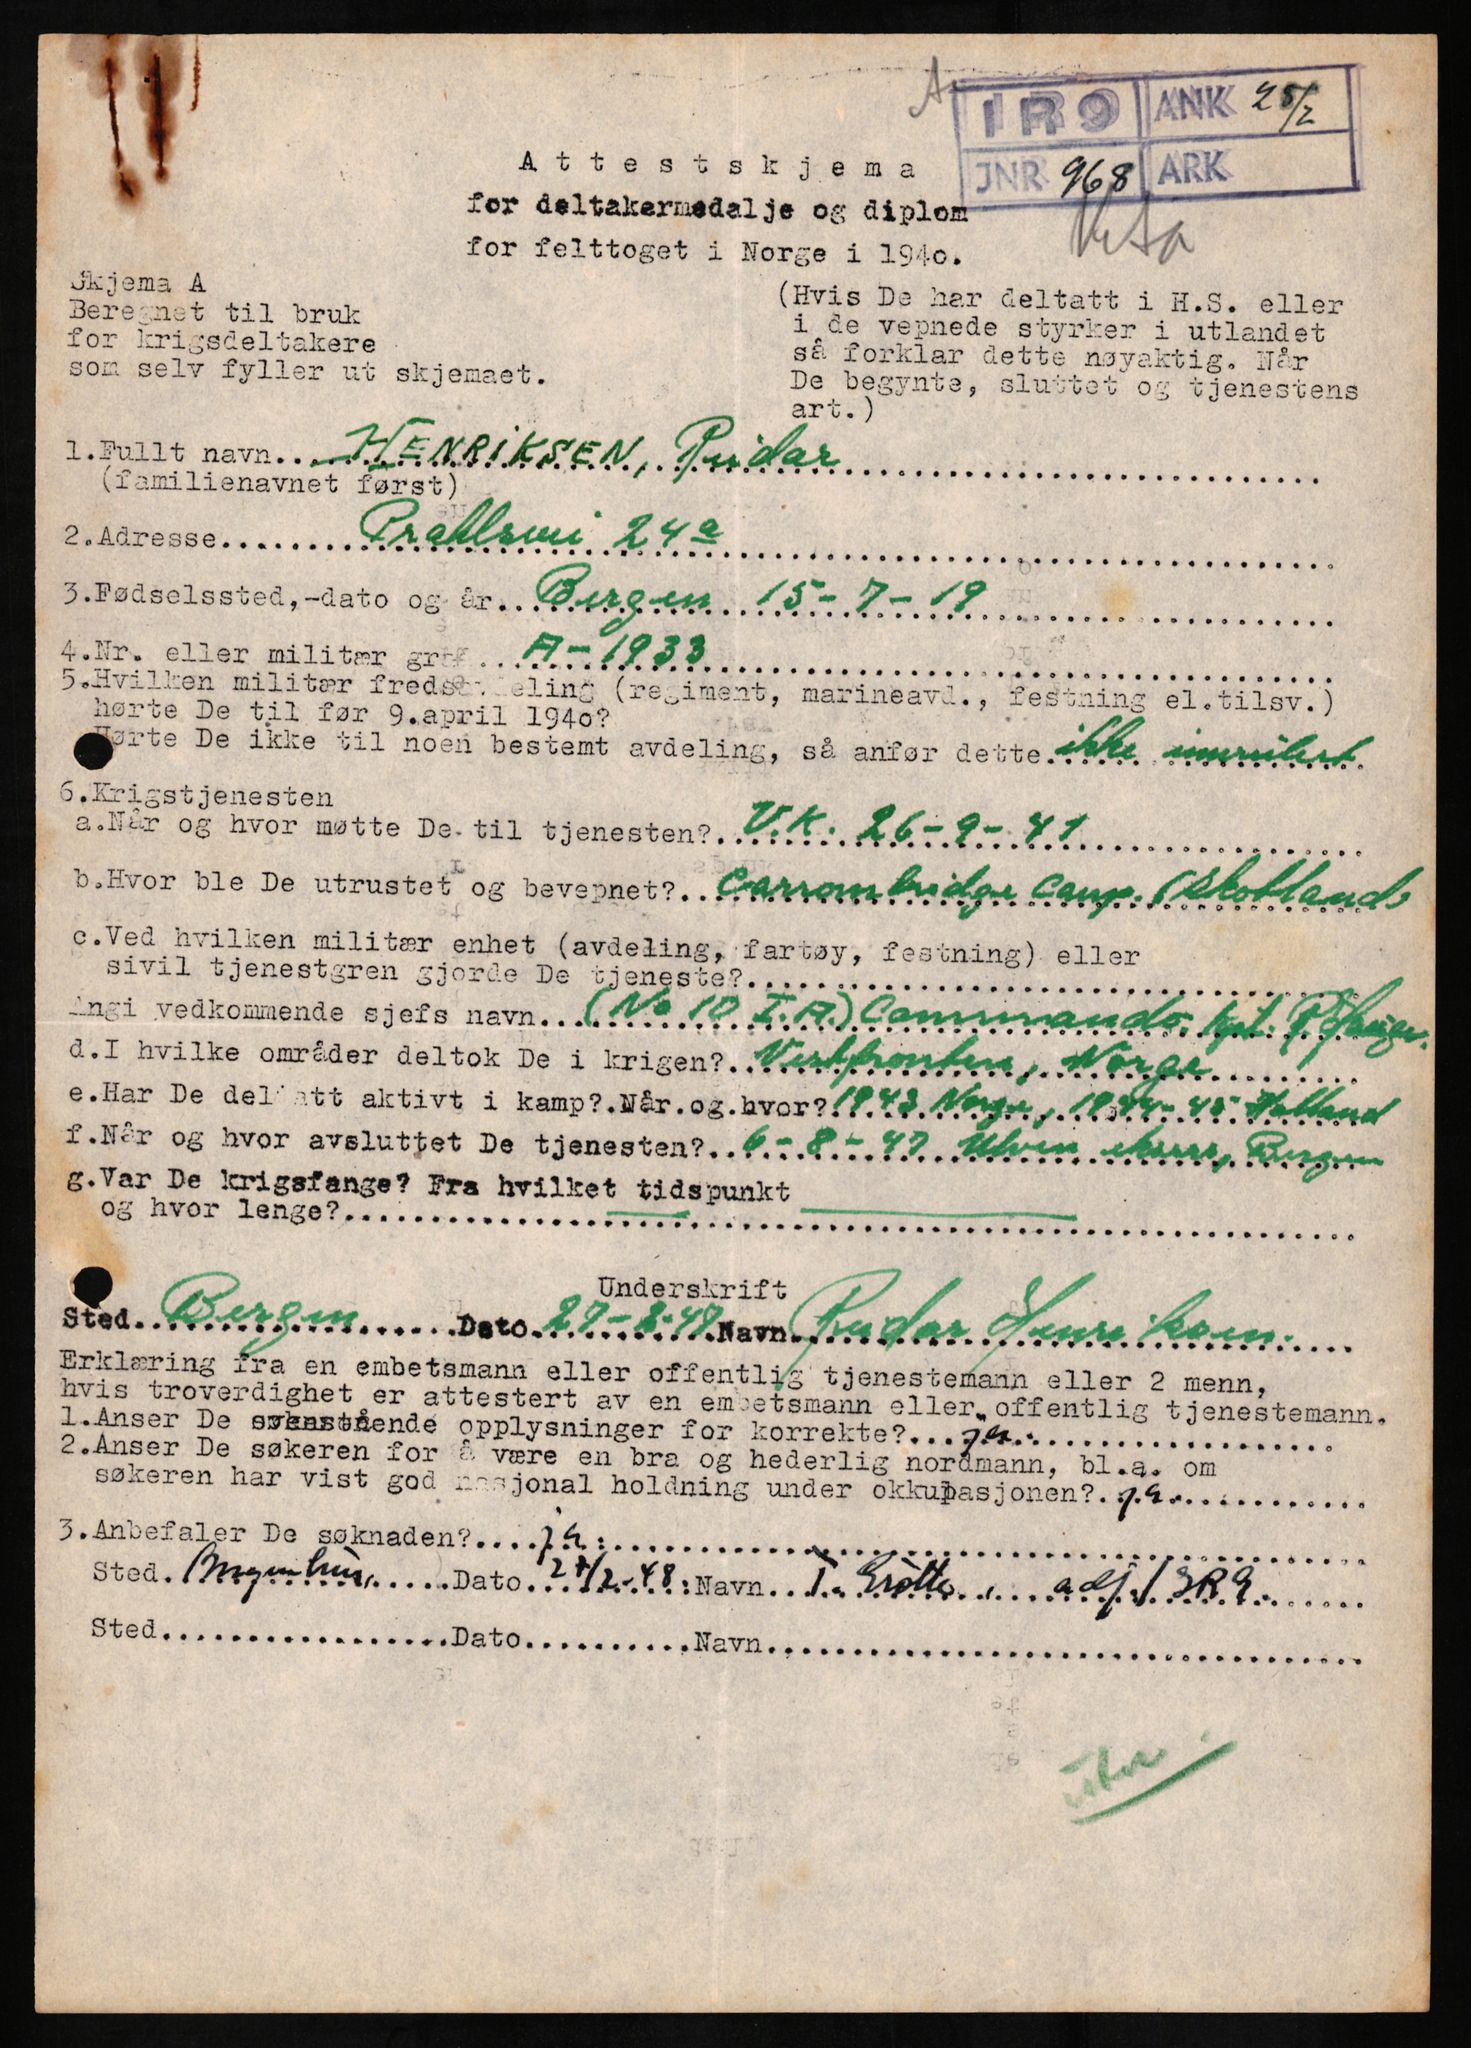 IR9 ANK 25/2
JNR 968 ARK
Attestskjema
for deltakermedalje og diplom
for felttoget i Norge i 1940.
Skjema A
Beregnet til bruk
for krigsdeltakere
som selv fyller ut skjemaet.
(Hvis De har deltatt i H.S. eller
i de vepnede styrker i utlandet
så forklar dette nøyaktig. Når
De begynte, sluttet og tjenestens
art.)
1.Fullt navn...HENRIKSEN, Reidar
(familienavnet først)
2.Adresse...Prahlsvei 24a
3.Fødselssted,-dato og år..Bergen 15-7-19
4.Nr. eller militær grad...A-1933
5.Hvilken militær fredsavdeling (regiment, marineavd., festning el.tilsv.)
hørte De til før 9.april 1940?
Hørte De ikke til noen bestemt avdeling, så anfør dette.ikke innrullert.
6.Krigstjenesten
a.Når og hvor møtte De til tjenesten?..U.K. 26-9-41
b.Hvor ble De utrustet og bevepnet?..Carronbridge Camp. (Skotland)
c.Ved hvilken militær enhet (avdeling, fartøy, festning) eller
sivil tjenestgren gjorde De tjeneste?
Angi vedkommende sjefs navn...(No 10 I.A.) Commando. Kpt. Hauge.
d.I hvilke områder deltok De i krigen?..Vestfronten, Norge
e.Har De deltatt aktivt i kamp?.Når.og.hvor?1943 Norge, 1944-45 Holland
f.Når og hvor avsluttet De tjenesten?..6-8-47 Ulven eksess, Bergen
g.Var De krigsfange? Fra hvilket tidspunkt
og hvor lenge?
Underskrift
Sted..Bergen Dato.27-2-47 Navn.Reidar Henriksen.
Erklæring fra en embetsmann eller offentlig tjenestemann eller 2 menn,
hvis troverdighet er attestert av en embetsmann eller offentlig tjenestemann.
1.Anser De ovenstående opplysninger for korrekte?...ja.
2.Anser De søkeren for å være en bra og hederlig nordmann, bl.a. om
søkeren har vist god nasjonal holdning under okkupasjonen?.ja.
3.Anbefaler De søknaden?....ja.
Sted.Bergenhus, Dato 27/2-48. Navn T. Grøtte, adj/IR9.
Sted.................Dato..........Navn